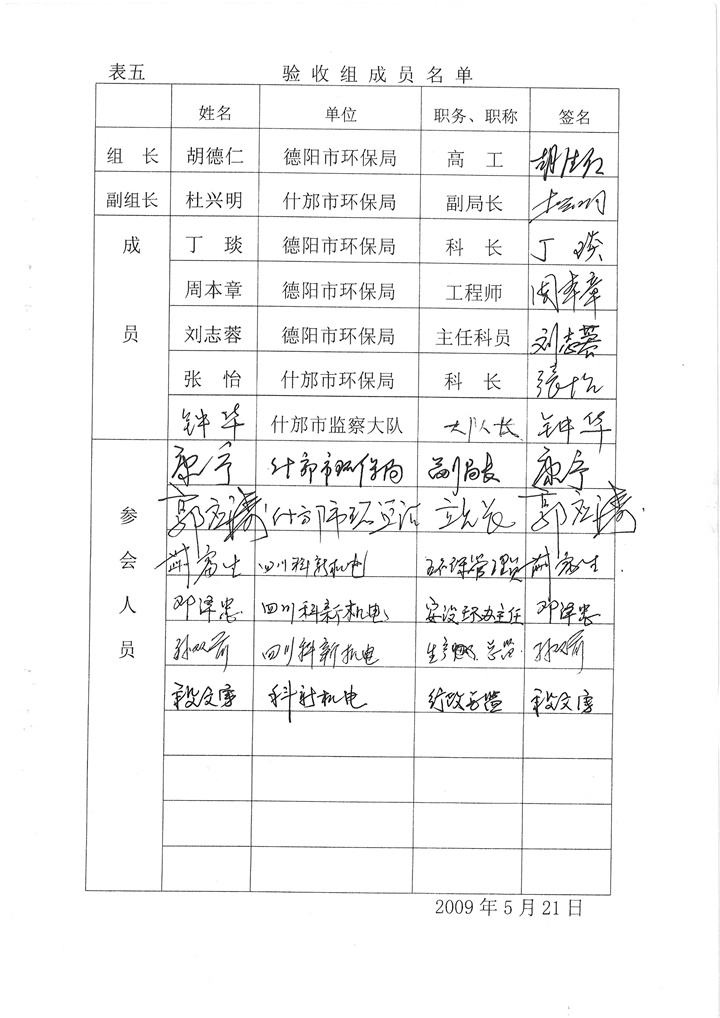 表五 验收组成员名单
姓名 单位 职务、职称 签名
组长 胡德仁 德阳市环保局 高工 胡德仁
副组长 杜兴明 什邡市环保局 副局长
成员 丁琰 德阳市环保局 科长 丁琰
周本章 德阳市环保局 工程师 周本章
刘志蓉 德阳市环保局 主任科员 刘志蓉
张怡 什邡市环保局 科长 張怡
钟华 什邡市监察大队 大队长 钟华
参会人员 康宁 什邡市环保局 副局长 康宁
郭应涛 什邡市环 站长 郭应涛
四川科新机电 环保管理员
邓泽忠 四川科新机电 安设环办主任 邓泽忠
四川科新机电 生产
科新机电 行政总监
2009年5月21日